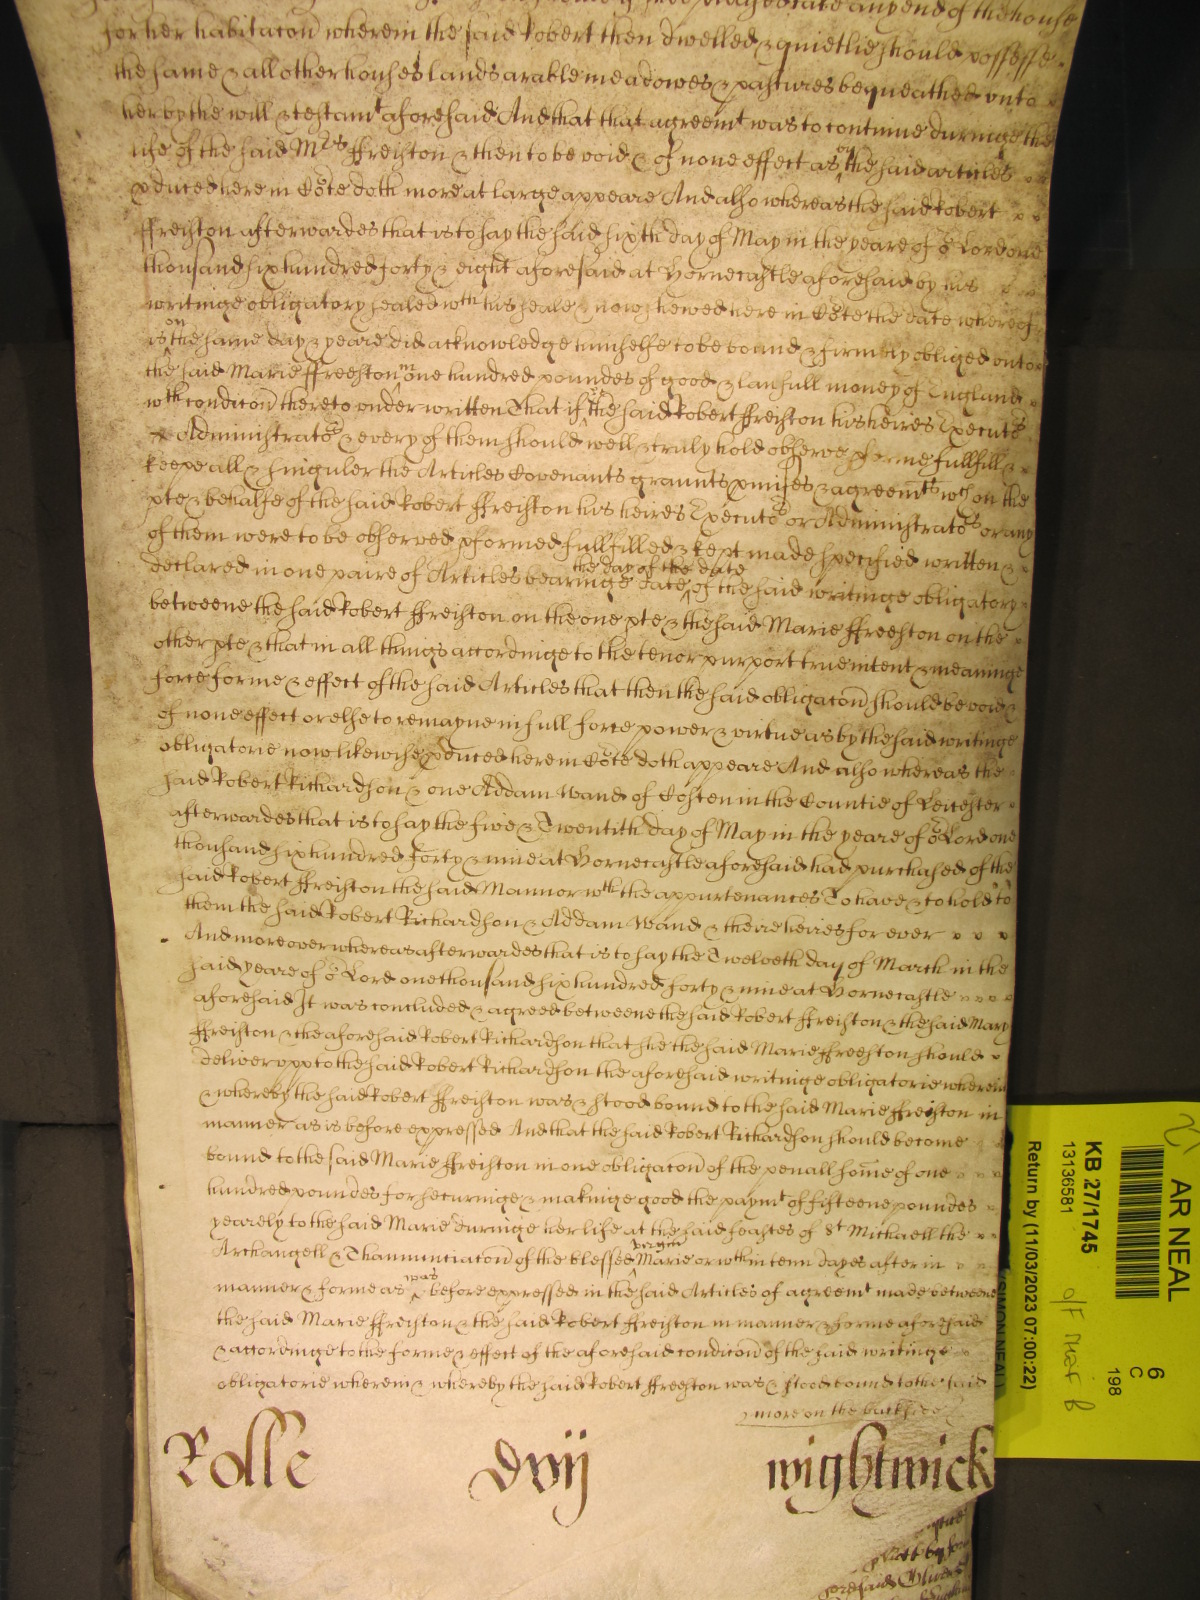 for her habitacon wherein the said Robert then dwelled & quietlie should possesse
the same & all other houses lands arable meadowes & pastures bequeathed unto
her by the will & testamt aforesaid And that that agreemt was to continue duringe the
life of the said Mrs ffreiston & then to be void & of none effect as on the said articles
pduced here in Cote doth more at large appeare And also whereas the said Robert
ffreiston afterwardes that is to say the said sixth day of May in the yeare of or Lord one
thousand six hundred forty & eight aforesaid at Hornecastle aforesaid by his
writinge obligatory sealed wth his seale & now shewed here in Cote the date whereof
is on the same day & yeare did acknowledge himselfe to be bound & firmely obliged unto
the said Marie ffreeston in one hundred poundes of good & laufull money of England
wth condicon thereto under written That if the said Robert ffreiston his heires Executors
& Administrators & every of them should well & truly hold observe pforme fullfill &
keepe all & singuler the Articles Covenants graunts pmises & agreemts wch on the
pte & behalfe of the said Robert ffreiston his heires Executors or Administrators or any
of them were to be observed pformed fullfilled & kept made specified written &
declared in one paire of Articles bearinge date the day of the date of the said writinge obligatory
betweene the said Robert ffreiston on the one pte & the said Marie ffreeston on the
other pte & that in all things accordinge to the tenor purport true intent & meaninge
force forme & effect of the said Articles that then the said obligacon should be void &
of none effect or else to remayne in full force power & virtue as by the said writinge
obligatorie now likewise pduced here in Cote doth appeare And also whereas the
said Robert Richardson & one Addam Wand of Costen in the Countie of Leicester
afterwardes that is to say the five & Twentith day of May in the yeare of or Lord one
thousand six hundred forty & nine at Hornecastle aforesaid had purchased of the
said Robert ffreiston the said Mannor wth the appurtenances To have & to hold to
them the said Robert Richardson & Addam Wand & theire heires for ever
And moreover whereas afterwardes that is to say the Twelveth day of March in the
said yeare of or Lord one thousand six hundred forty & nine at Hornecastle
aforesaid It was concluded & agreed betweene the said Robert ffreiston & the said Mary
ffreiston & the aforesaid Robert Richardson that she the said Marie ffreeston should
deliver upp to the said Robert Richardson the aforesaid writinge obligatorie wherein
& whereby the said Robert ffreiston was & stood bound to the said Marie ffreiston in
manner as is before expressed And that the said Robert Richardson should become
bound to the said Marie ffreiston in one obligacon of the penall some of one
hundred poundes for securinge & makinge good the paymt of fifteene poundes
yearely to the said Marie duringe her life at the said feastes of St Michaell the
Archangell & Thannunciacon of the blessed virgin Marie or wthin tenn dayes after in
manner & forme as was before expressed in the said Articles of agreemt made betweene
the said Marie ffreiston & the said Robert ffreiston in manner & forme aforesaid
& accordinge to the forme & effect of the aforesaid condicon of the said writinge
obligatorie wherein & whereby the said Robert ffreeston was & stood bound to the said
more on the backside
Rolle dviij wightwick
AR NEAL
KB 27/1745
13136581
Return by (11/03/2023 07:00:22)
6
C
198